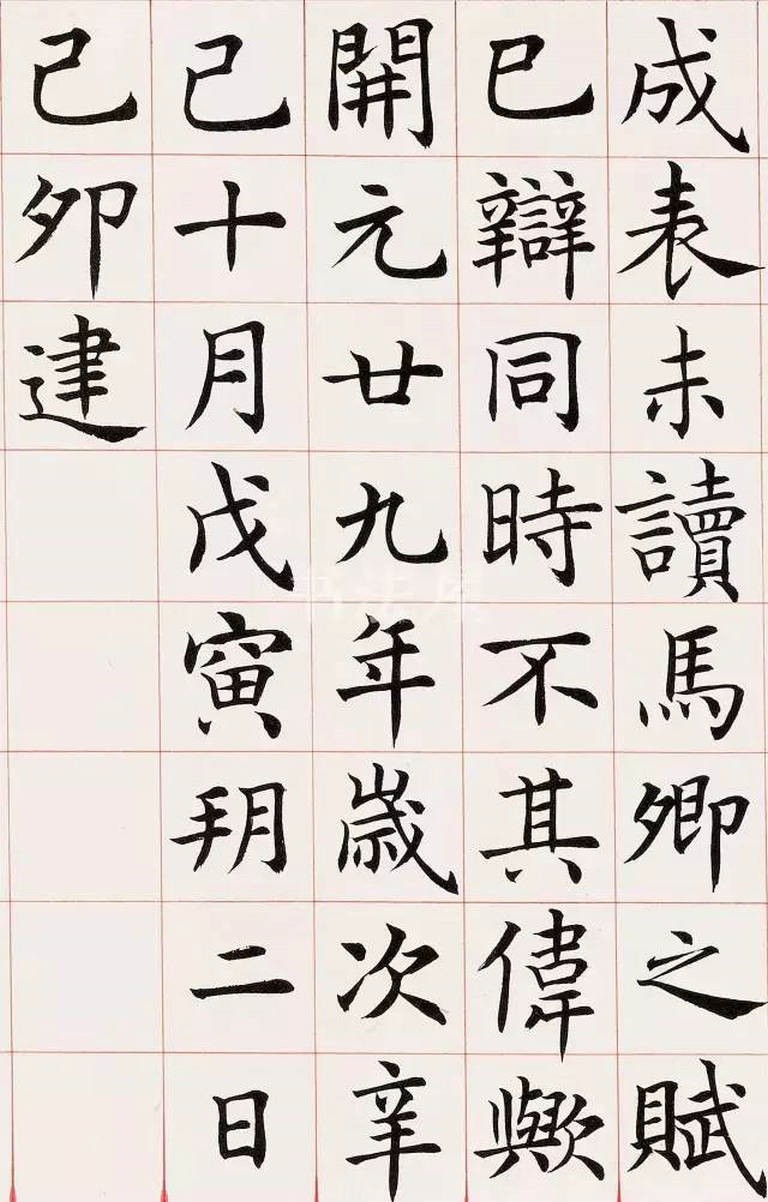 成表未讀馬卿之賦
巳辯同時不其偉歟
開元廿九年歲次辛
已十月戊寅朔二日
己卯建